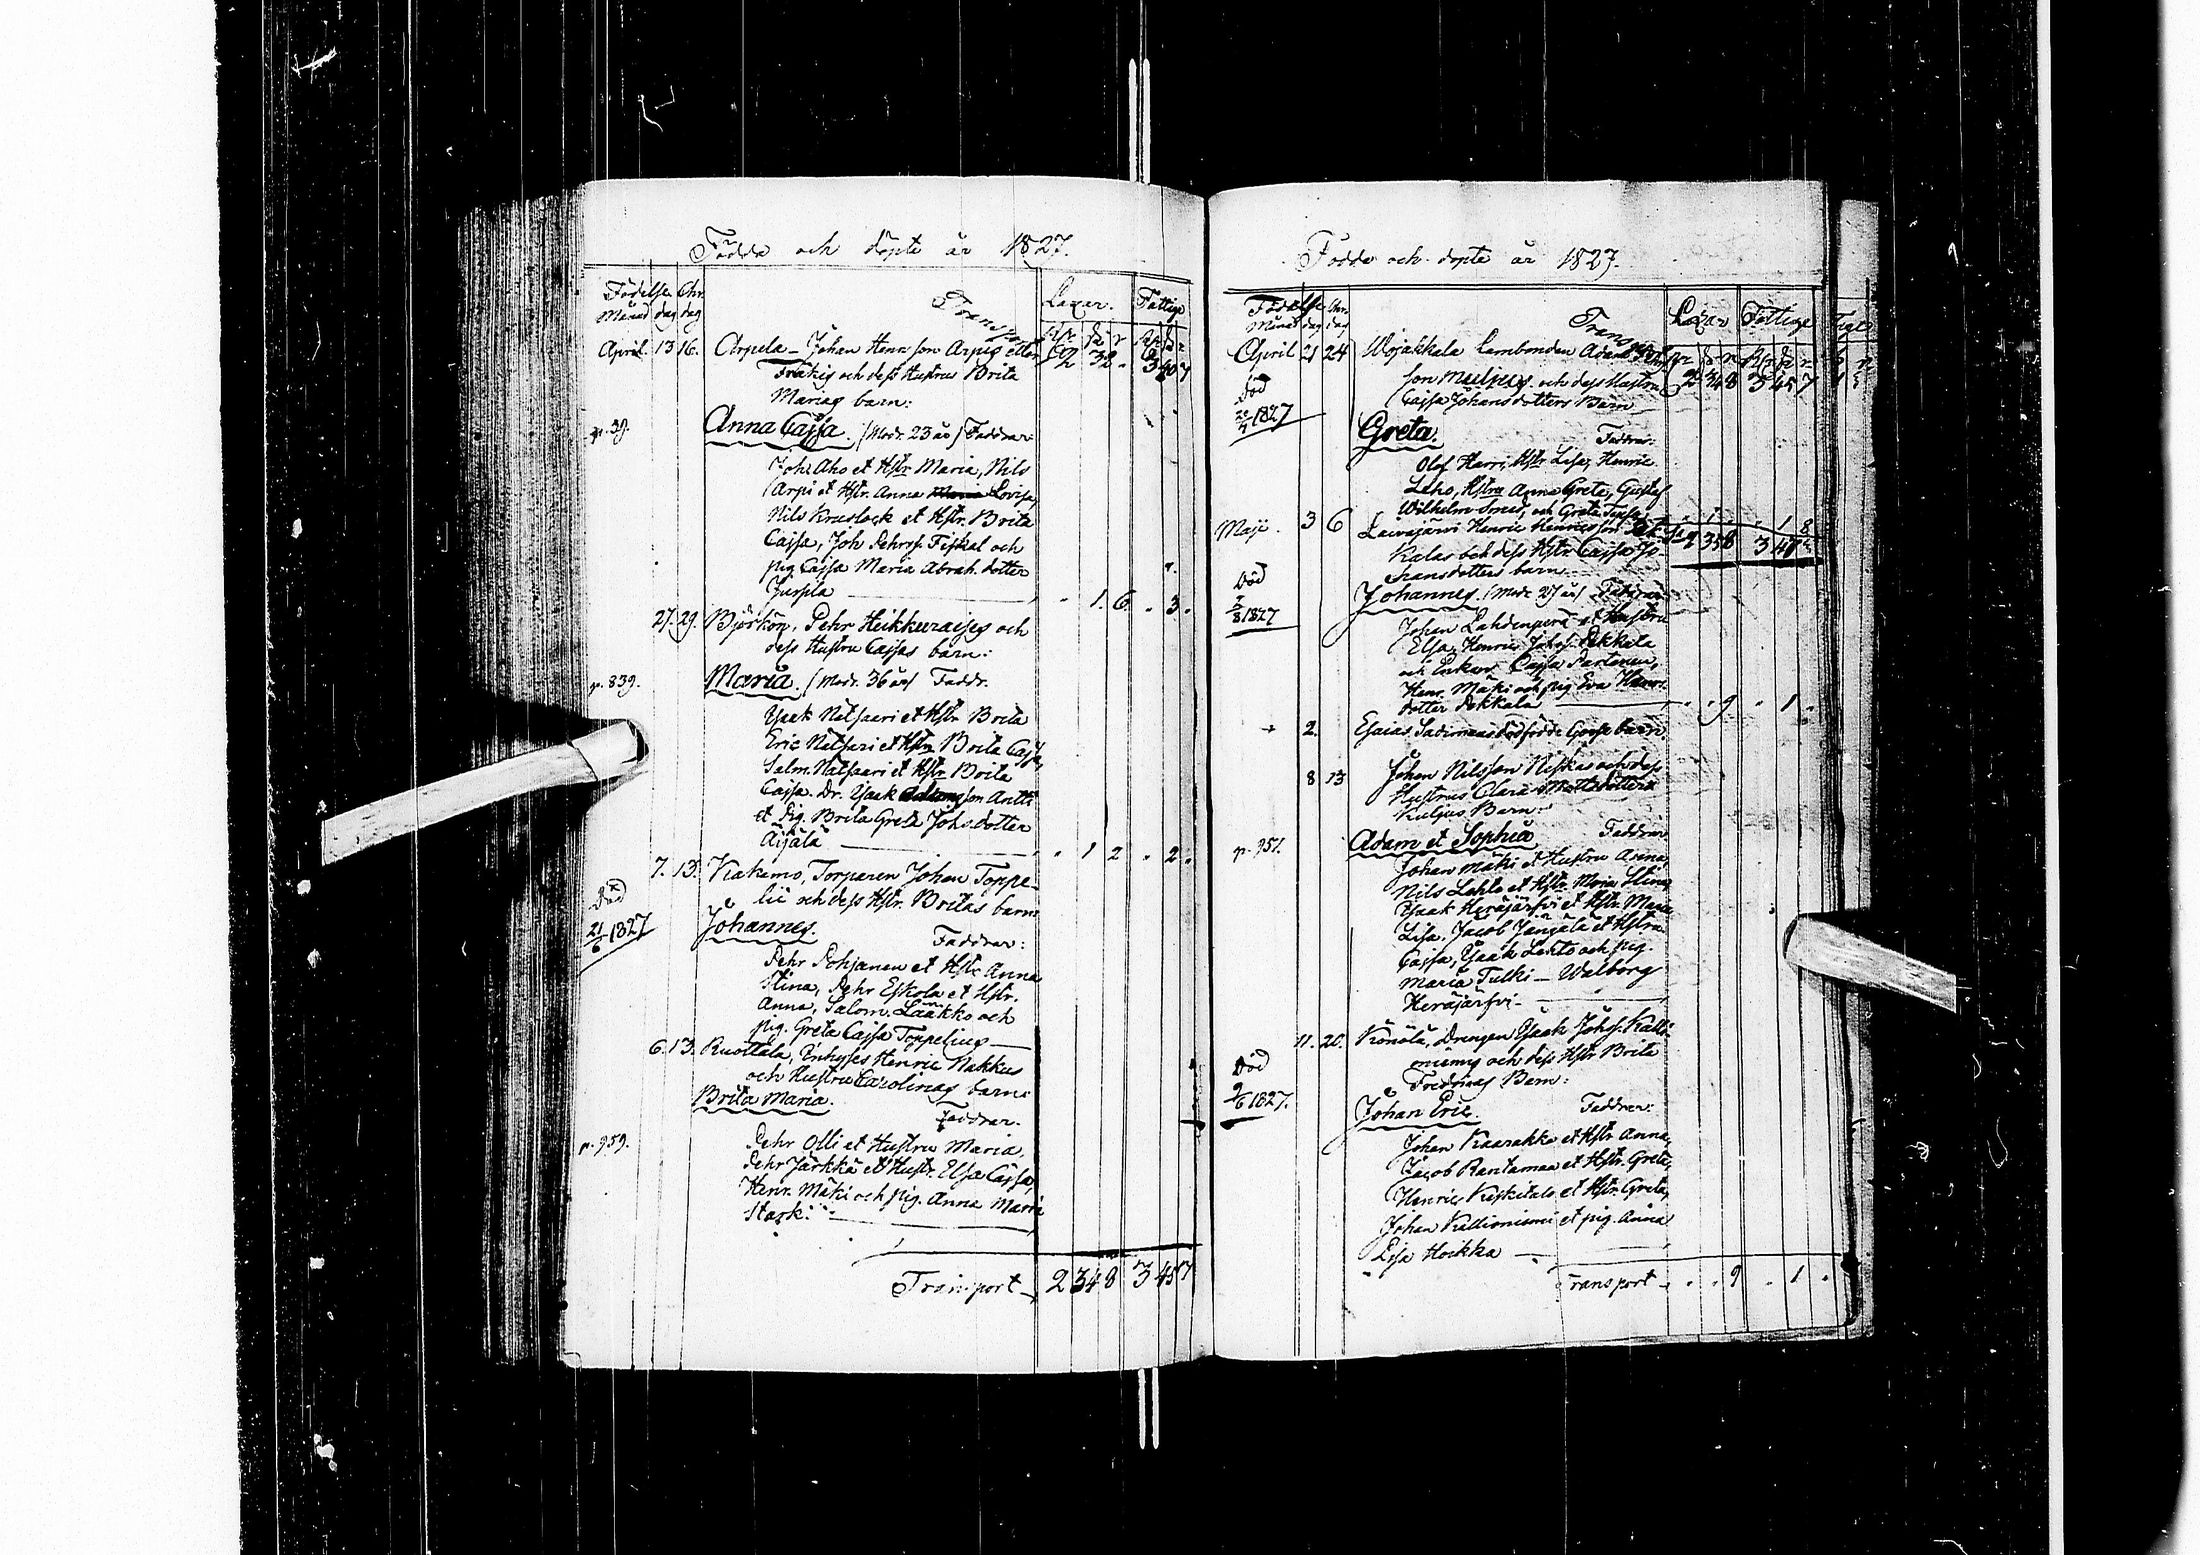 Födde och döpte år 1827.
Födelse Chr.
Månad dag dag
Transport
Lazar. Fattige
April. 13 16. Arpela – Johan Henr. son Arpis eller 2 32 . 3 40 7
Frakig och dess Hustrus Brita
Marias barn:
p. 39. Anna Cajsa. (Modr. 23 år) Faddrar:
Joh: Aho et Hstr Maria, Nils
Arpi et Hstr. Anna Lovisa,
Nils Kruslock et Hstr. Brita
Cajsa, Joh Pehrss. Fiskal och
pig Cajsa Maria Abrah. dotter
Jurpla – . 1. 6 . 3 .
27. 29. Björkön, Pehr Heikkuraises och
dess Hustru Cajsas barn:
p. 839. Maria. (Modr. 36 år) Faddr.
Isaak Natsaari et Hstr Brita
Eric Natsari et Hstr Brita Cajsa,
Salm. Natsaari et Hstr Brita
Cajsa. Dr. Isaak Adamsson Antti
et Pig. Brita Greta Johs. dotter
Äijälä – . 1 2 . 2 .
7. 13. Kakamo, Torparen Johan Toppe-
lii och dess Hstr. Britas barn:
Död
21/6 1827
Johannes. Faddrar:
Pehr Pohjanen et Hstr Anna
Stina, Pehr Eskola et Hstr.
Anna, Salom. Laakko och
pig. Greta Cajsa Toppelius –
6. 13. Ruottala, Inhyses Henric Nakkus
och Hustru Carolinas barn:
Brita Maria.
Faddrar.
p. 959. Pehr Olli et Hustru Maria,
Pehr Järkkä et Hustr. Elsa Cajsa,
Henr. Mäki och pig. Anna Maria
Stark: –
Transport – 2 34 8 3 45 7
Födde och döpte år 1827.
Födelse Chr.
Månad dag dag
Transport
Lazar Fattige
April 21 24 Wojakkala Lambonden Adam
son och dess Hustru 2 34 8 3 45 7
Cajsa Johansdotters Barn
Död
1827
Greta. Faddrar:
Olof Harri, Hstr Lisa, Henric
Leho, Hstru Anna Greta, Gustaf
Wilhelm Smed, och Greta
Maji. 3 6 Laivajärvi Henric Henricsson
Kalas och dess Hstr Cajsa Jo-
hansdotters barn
Död
1827
Johannes. (Modr 27 år) Faddrar
Johan Lahdenperä et Hustru
Elsa, Henric Johss. Pekkala
och Enkan Cajsa Partanen,
Henr. Mäki och pig Eva Henrs.
dotter Pekkala – . . 9 . 1 .
2. Esaias dödfödde Gosse barn.
8 13 Johan Nilsson Niskas och dess
Hustrus Clara Mattsdotters
Kuljus Barn:
p. 957. Adam et Sophia Faddrar
Johan Mäki et Hustru Anna,
Nils Lehto et Hstr. Maria Stina,
Isaak Heräjärfvi et Hstr. Maria
Lisa. Jacob Jängälä et Hstru
Cajsa, Isaak Lehto och pig.
Maria Tulki – Walborg
Heräjärfvi –
11. 20. Könölä, Drengen Isaak Johss. Kalli-
oniemis och dess Hstr Brita
Fredricas Barn:
Död
9/6 1827.
Johan Eric. Faddrar:
Johan Kaarakka et Hstr Anna,
Jacob Rantamaa et Hstr. Greta,
Henric Keskitalo et Hstr. Greta,
Johan Kallioniemi et pig. Anna
Lisa Hoikka –
Transport – . . 9 . 1 .